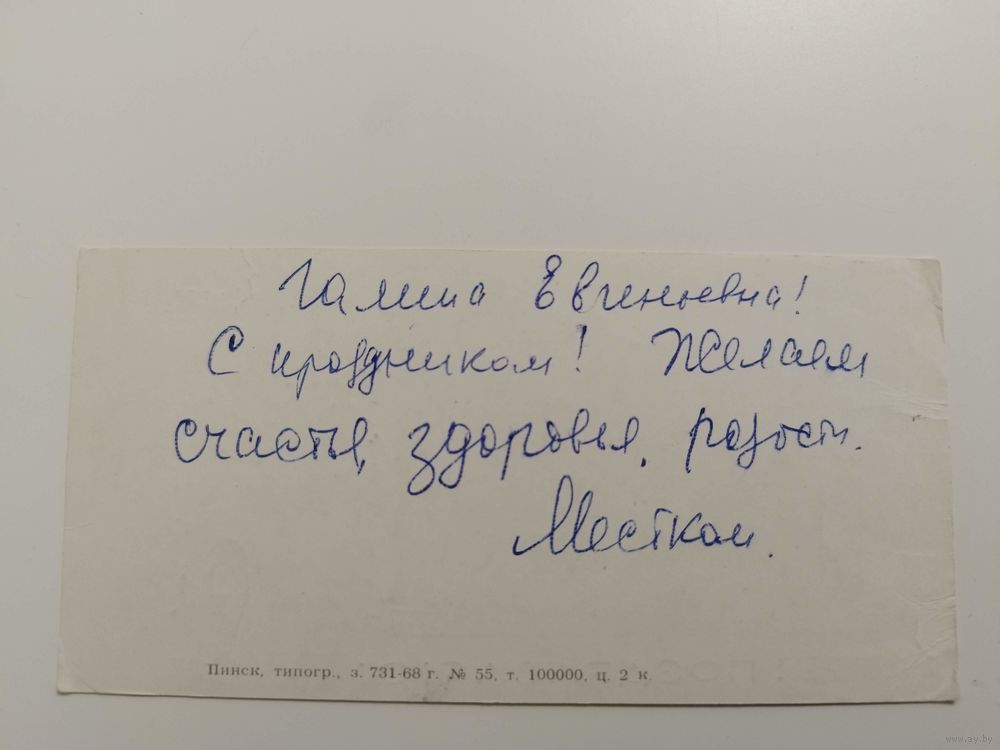 Галина Евгеньевна!
С праздником! Желаем
счастья, здоровья, радости.
Местком.
Пинск, типогр., з. 731-68 г. № 55, т. 100000, ц. 2 к.
www.ay.by